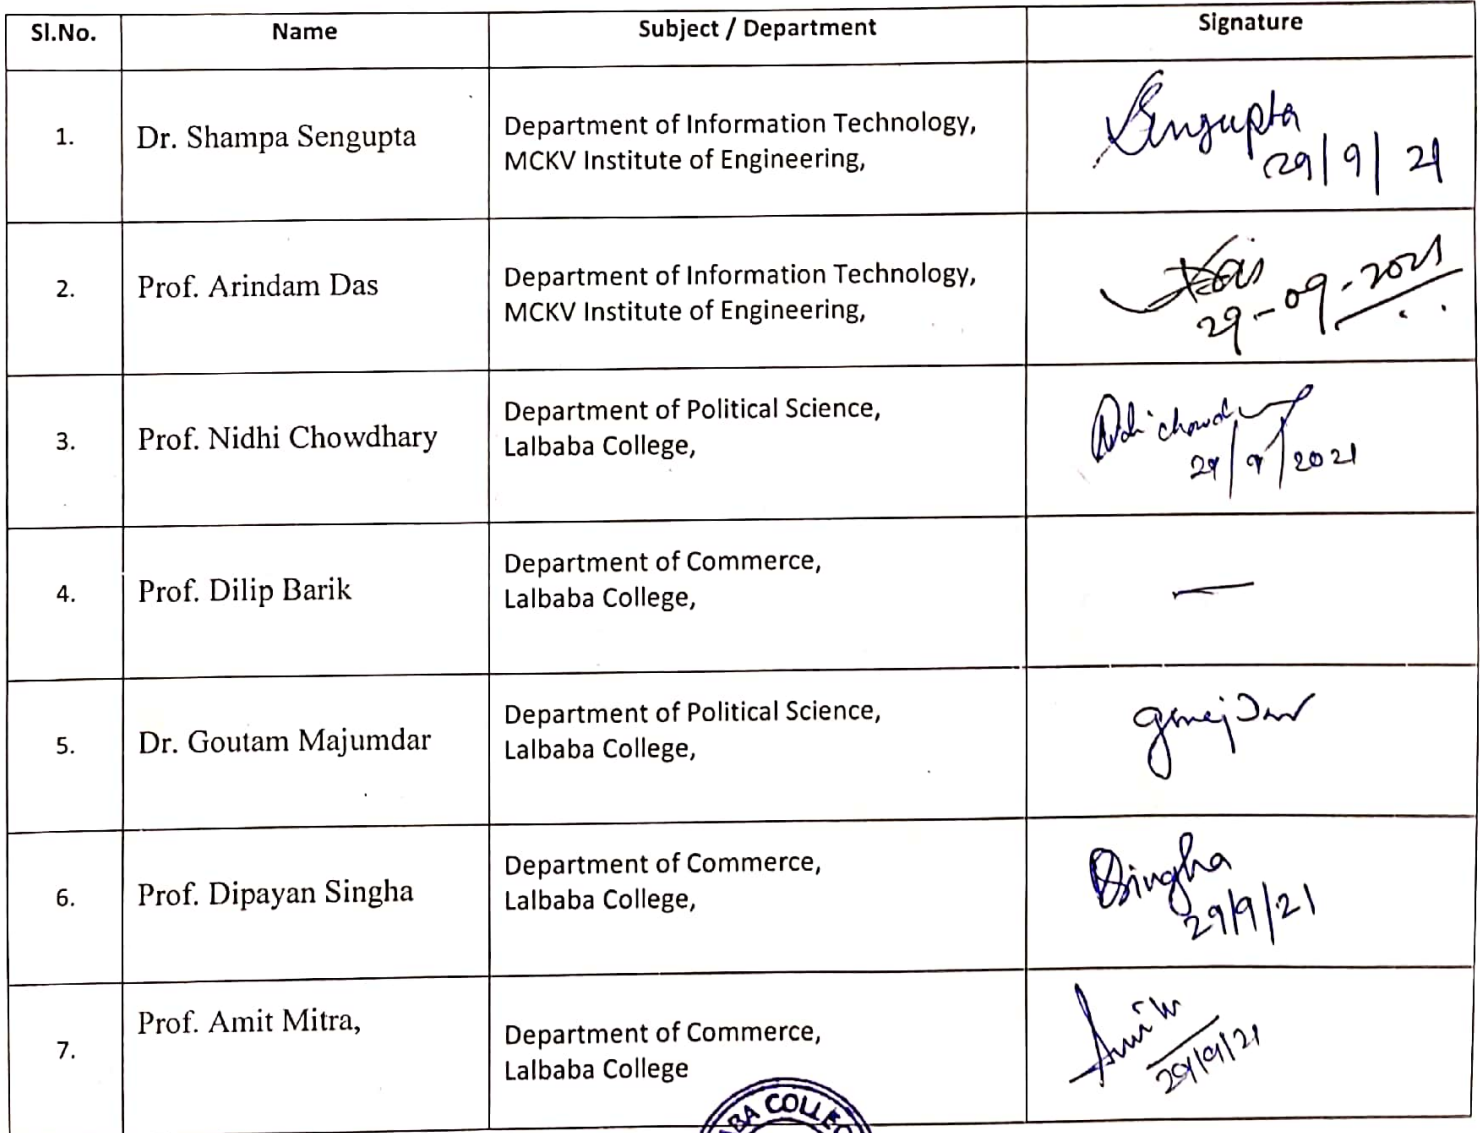 Sl.No. Name Subject / Department Signature
1. Dr. Shampa Sengupta Department of Information Technology, Sengupta
MCKV Institute of Engineering, 29/9/21
2. Prof. Arindam Das Department of Information Technology, Das
MCKV Institute of Engineering, 29-09-2021
3. Prof. Nidhi Chowdhary Department of Political Science,
Lalbaba College, 29/9/2021
4. Prof. Dilip Barik Department of Commerce, —
Lalbaba College,
5. Dr. Goutam Majumdar Department of Political Science,
Lalbaba College,
6. Prof. Dipayan Singha Department of Commerce, DSingha
Lalbaba College, 29/9/21
7. Prof. Amit Mitra, Department of Commerce,
Lalbaba College 29/9/21
BABA COLLEG